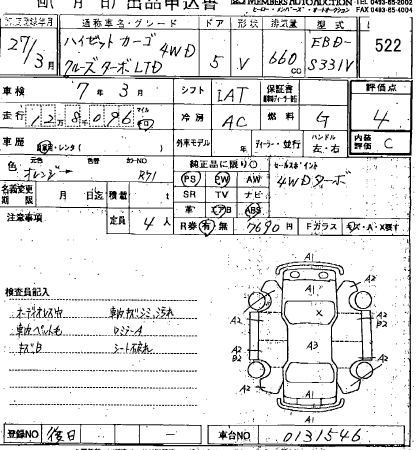 出品申込書
MEMBERS AUTO AUCTION
TEL 0493-65-2002
FAX 0493-65-4004
通称車名・グレード ドア 形状 排気量 型式
27年3月 ハイゼットカーゴ 4WD クルーズターボLTD 5 V 660cc EBD-S331V 522
車検 7年3月 シフト IAT 保証書 評価点
走行 128096 冷房 AC 燃料 G 4
車歴 自家用・レンタ 外車モデル 年 ディーラー・並行 ハンドル 左・右 内装評価 C
色 元色 色替 カラーNO 純正品に限り○ セールスポイント
オレンジ R71 PS PW AW 4WDターボ
名義変更期限 月 日迄 積載 t SR TV ナビ
注意事項 定員 4人 革 エアB ABS
R券 有 無 7690円 Fガラス キズ・A・X要す
検査員記入
オーディオレス中 車内キズシミ汚れ
車内ペット毛
キズB
A1
A1
A2 A2
A2 X A2
A2 B2 A3 A2 B2
A2 A2
A1
A1
登録NO 後日 — 車台NO 0131546